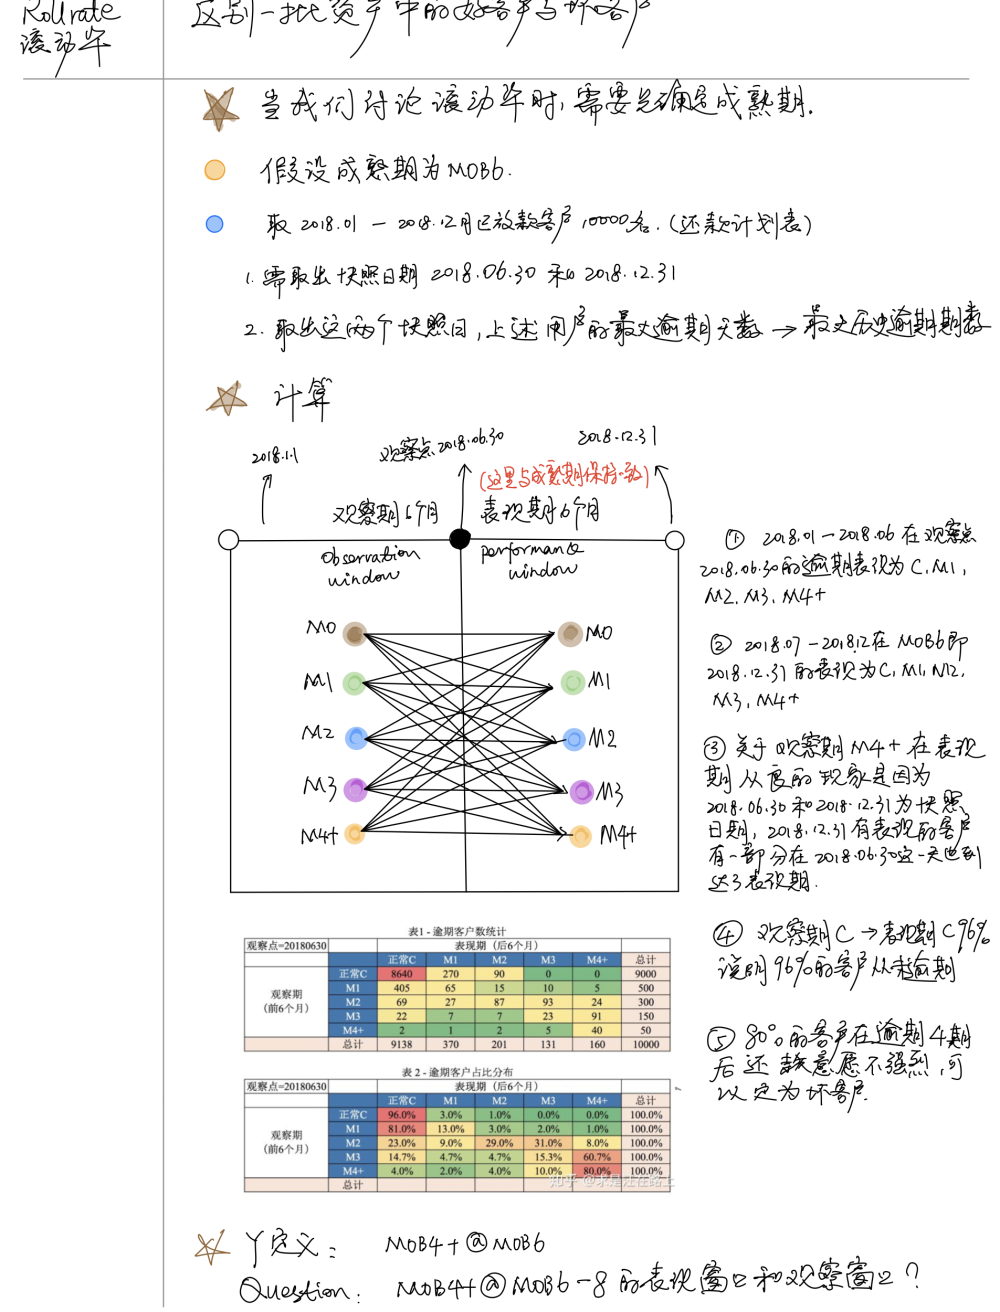 Rollrate
滚动率
区别一批资产中的好客户与坏客户
当我们讨论滚动率时,需要先确定成熟期.
假设成熟期为MOB6.
取 2018.01 — 2018.12月已放款客户 10000名.(还款计划表)
1. 需取出快照日期 2018.06.30 和 2018.12.31
2. 取出这两个快照日,上述用户的最大逾期天数 → 最大历史逾期期数
计算
2018.1.1
观察点2018.06.30
2018.12.31
(这里与成熟期保持一致)
观察期6个月
表现期6个月
observation
window
performance
window
M0
M0
M1
M1
M2
M2
M3
M3
M4+
M4+
① 2018.01 — 2018.06 在观察点
2018.06.30的逾期表现为 C, M1,
M2, M3, M4+
② 2018.07 — 2018.12在 MOB6即
2018.12.31 的表现为C, M1, M2,
M3, M4+
③ 关于观察期M4+在表现
期从良的现象是因为
2018.06.30和2018.12.31为快照
日期, 2018.12.31有表现的客户
有一部分在2018.06.30这一天也到
达了表现期.
④ 观察期C → 表现期C 96%
说明96%的客户从未逾期
⑤ 80%的客户在逾期4期
后还款意愿不强烈,可
以定为坏客户.
表1 - 逾期客户数统计
观察点=20180630 表现期（后6个月）
正常C M1 M2 M3 M4+ 总计
观察期
（前6个月）
正常C 8640 270 90 0 0 9000
M1 405 65 15 10 5 500
M2 69 27 87 93 24 300
M3 22 7 7 23 91 150
M4+ 2 1 2 5 40 50
总计 9138 370 201 131 160 10000
表 2 - 逾期客户占比分布
观察点=20180630 表现期（后6个月）
正常C M1 M2 M3 M4+ 总计
观察期
（前6个月）
正常C 96.0% 3.0% 1.0% 0.0% 0.0% 100.0%
M1 81.0% 13.0% 3.0% 2.0% 1.0% 100.0%
M2 23.0% 9.0% 29.0% 31.0% 8.0% 100.0%
M3 14.7% 4.7% 4.7% 15.3% 60.7% 100.0%
M4+ 4.0% 2.0% 4.0% 10.0% 80.0% 100.0%
总计
知乎 @求是汪在路上
Y定义: MOB4+@MOB6
Question: MOB4+@MOB6-8 的表现窗口和观察窗口?